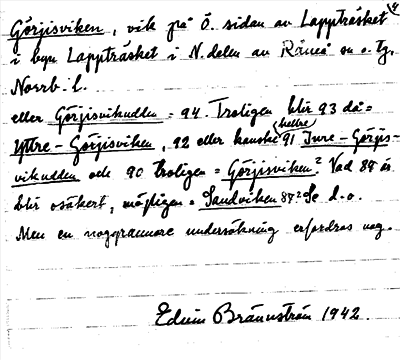 Görjisviken, vik på Ö. sidan av Lappträsket
i byn Lappträsket i N. delen av Råneå sn o. tg.
Norrb. l.
eller Görjisvikudden = 94. Troligen blir 93 då =
Yttre-Görjisviken, 92 eller kanske hellre 91 Inre-Görjis-
vikudden och 90 troligen = Görjisviken? Vad 89 är
blir osäkert, möjligen = Sandviken 87? Se d.o.
Men en noggrannare undersökning erfordras nog.
Edvin Brännström 1942.